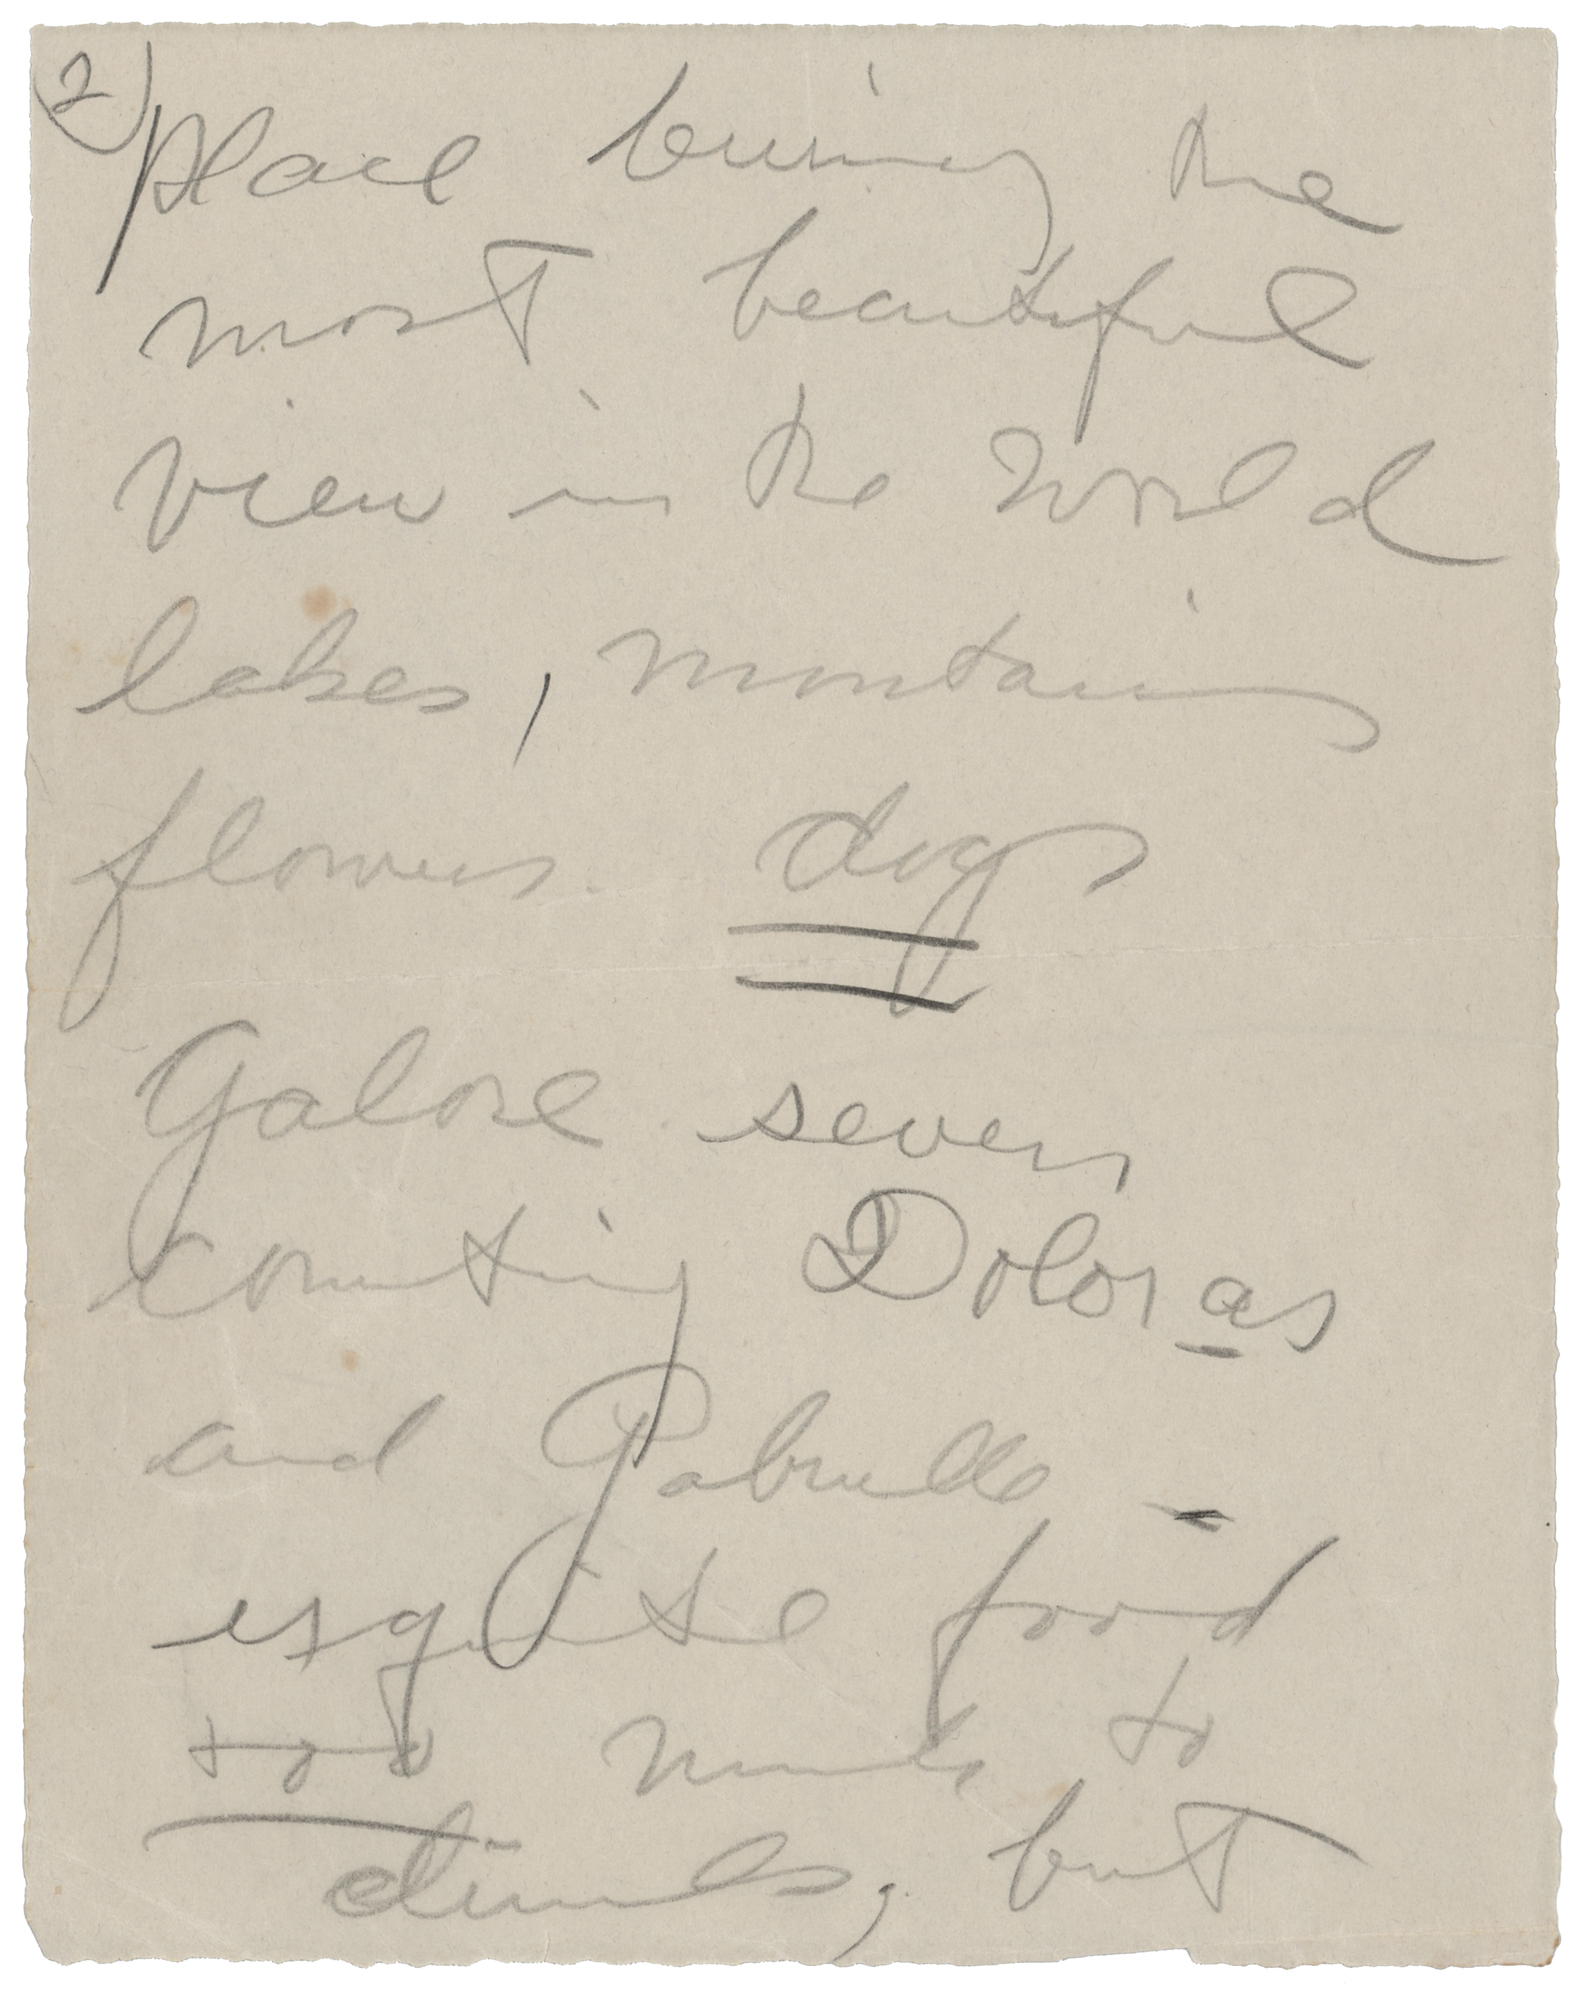 2)
place being the
most beautiful
view in the world
lakes, mountains
flowers. dogs
galore seven
counting Doloras
and Gabrielle -
exquisite food
too much to
drink, but